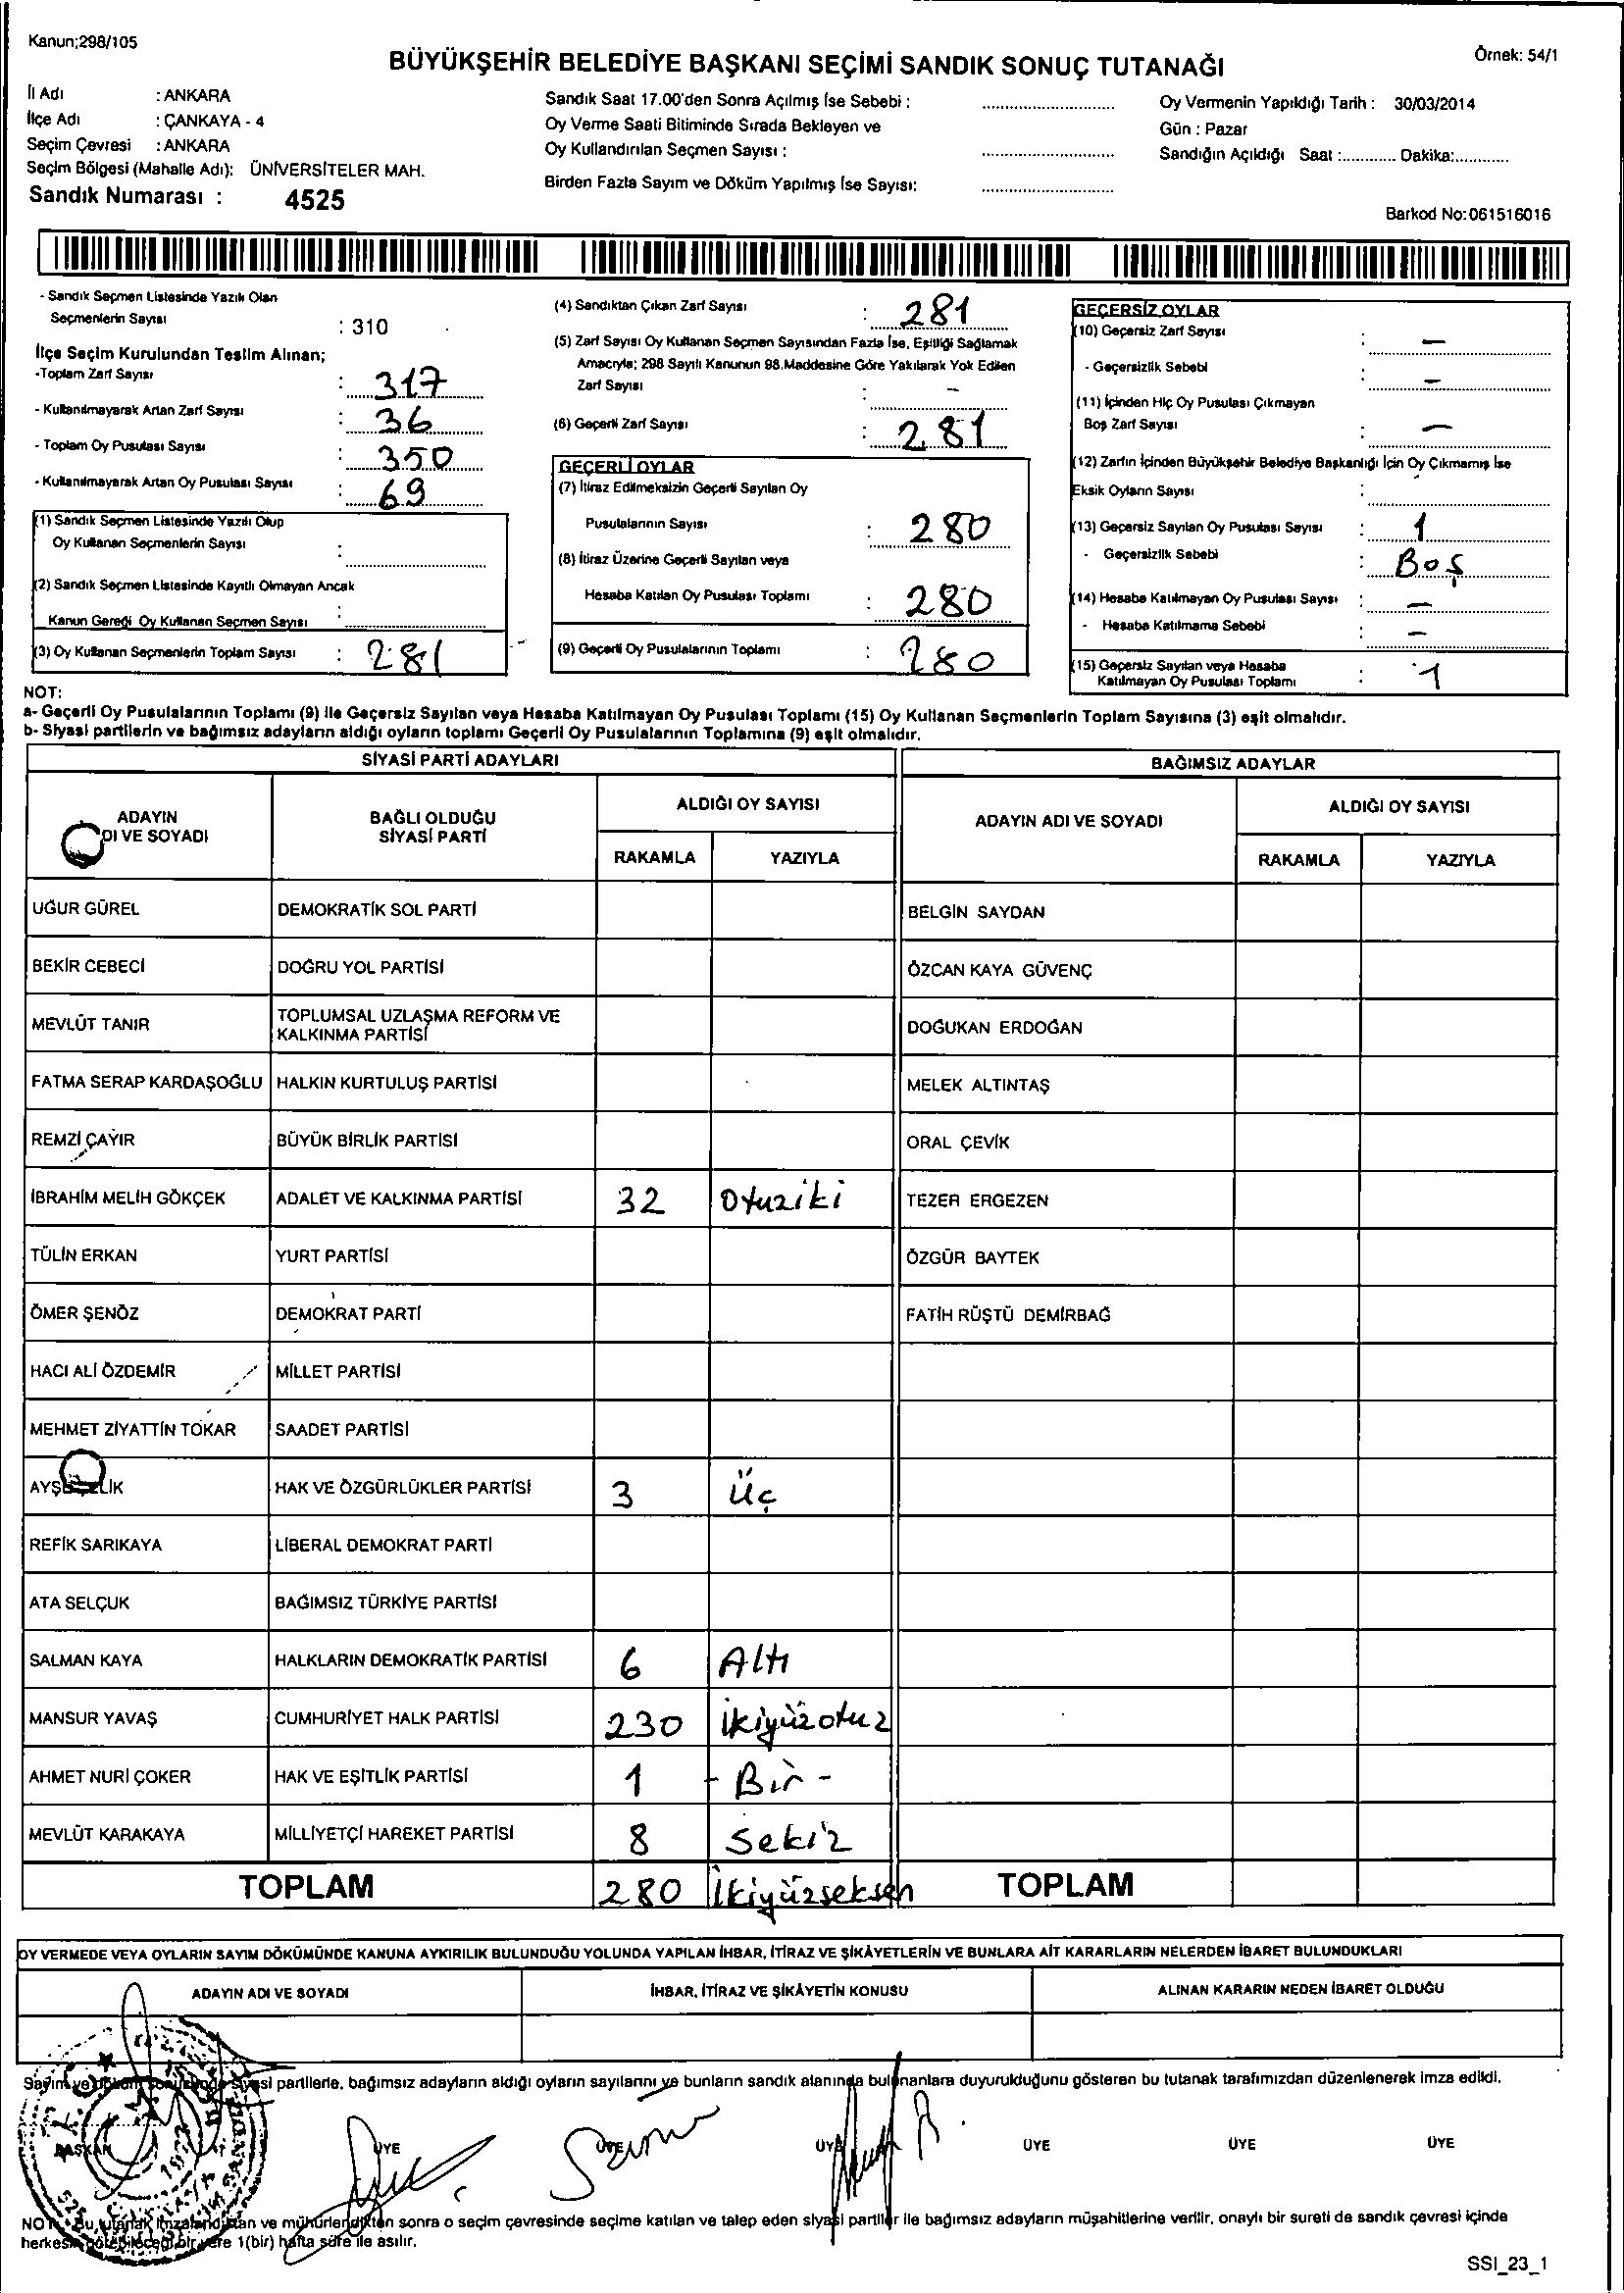 Kanun;298/105
Örnek: 54/1
BÜYÜKŞEHİR BELEDİYE BAŞKANI SEÇİMİ SANDIK SONUÇ TUTANAĞI
İl Adı : ANKARA
İlçe Adı : ÇANKAYA - 4
Seçim Çevresi : ANKARA
Seçim Bölgesi (Mahalle Adı): ÜNİVERSİTELER MAH.
Sandık Numarası : 4525
Sandık Saat 17.00'den Sonra Açılmış İse Sebebi :
Oy Verme Saati Bitiminde Sırada Bekleyen ve
Oy Kullandırılan Seçmen Sayısı :
Birden Fazla Sayım ve Döküm Yapılmış İse Sayısı:
Oy Vermenin Yapıldığı Tarih : 30/03/2014
Gün : Pazar
Sandığın Açıldığı Saat :............ Dakika:............
Barkod No:061516016
- Sandık Seçmen Listesinde Yazılı Olan
Seçmenlerin Sayısı : 310
İlçe Seçim Kurulundan Teslim Alınan;
-Toplam Zarf Sayısı : 317
- Kullanılmayarak Artan Zarf Sayısı : 36
- Toplam Oy Pusulası Sayısı : 350
- Kullanılmayarak Artan Oy Pusulası Sayısı : 69
(1) Sandık Seçmen Listesinde Yazılı Olup
Oy Kullanan Seçmenlerin Sayısı :
(2) Sandık Seçmen Listesinde Kayıtlı Olmayan Ancak
Kanun Gereği Oy Kullanan Seçmen Sayısı :
(3) Oy Kullanan Seçmenlerin Toplam Sayısı : 281
(4) Sandıktan Çıkan Zarf Sayısı : 281
(5) Zarf Sayısı Oy Kullanan Seçmen Sayısından Fazla İse, Eşitliği Sağlamak
Amacıyla; 298 Sayılı Kanunun 98.Maddesine Göre Yakılarak Yok Edilen
Zarf Sayısı : -
(6) Geçerli Zarf Sayısı : 281
GEÇERLİ OYLAR
(7) İtiraz Edilmeksizin Geçerli Sayılan Oy
Pusulalarının Sayısı : 280
(8) İtiraz Üzerine Geçerli Sayılan veya
Hesaba Katılan Oy Pusulası Toplamı : 280
(9) Geçerli Oy Pusulalarının Toplamı : 280
GEÇERSİZ OYLAR
(10) Geçersiz Zarf Sayısı : -
- Geçersizlik Sebebi : -
(11) İçinden Hiç Oy Pusulası Çıkmayan
Boş Zarf Sayısı : -
(12) Zarfın İçinden Büyükşehir Belediye Başkanlığı İçin Oy Çıkmamış İse
Eksik Oyların Sayısı :
(13) Geçersiz Sayılan Oy Pusulası Sayısı : 1
- Geçersizlik Sebebi : Boş
(14) Hesaba Katılmayan Oy Pusulası Sayısı : -
- Hesaba Katılmama Sebebi : -
(15) Geçersiz Sayılan veya Hesaba
Katılmayan Oy Pusulası Toplamı : 1
NOT:
a- Geçerli Oy Pusulalarının Toplamı (9) ile Geçersiz Sayılan veya Hesaba Katılmayan Oy Pusulası Toplamı (15) Oy Kullanan Seçmenlerin Toplam Sayısına (3) eşit olmalıdır.
b- Siyasi partilerin ve bağımsız adayların aldığı oyların toplamı Geçerli Oy Pusulalarının Toplamına (9) eşit olmalıdır.
SİYASİ PARTİ ADAYLARI
BAĞIMSIZ ADAYLAR
ADAYIN
DI VE SOYADI
BAĞLI OLDUĞU
SİYASİ PARTİ
ALDIĞI OY SAYISI
RAKAMLA YAZIYLA
ADAYIN ADI VE SOYADI
ALDIĞI OY SAYISI
RAKAMLA YAZIYLA
UĞUR GÜREL DEMOKRATİK SOL PARTİ BELGİN SAYDAN
BEKİR CEBECİ DOĞRU YOL PARTİSİ ÖZCAN KAYA GÜVENÇ
MEVLÜT TANIR TOPLUMSAL UZLAŞMA REFORM VE
KALKINMA PARTİSİ DOĞUKAN ERDOĞAN
FATMA SERAP KARDAŞOĞLU HALKIN KURTULUŞ PARTİSİ MELEK ALTINTAŞ
REMZİ ÇAYIR BÜYÜK BİRLİK PARTİSİ ORAL ÇEVİK
İBRAHİM MELİH GÖKÇEK ADALET VE KALKINMA PARTİSİ 32 Otuziki TEZER ERGEZEN
TÜLİN ERKAN YURT PARTİSİ ÖZGÜR BAYTEK
ÖMER ŞENÖZ DEMOKRAT PARTİ FATİH RÜŞTÜ DEMİRBAĞ
HACI ALİ ÖZDEMİR MİLLET PARTİSİ
MEHMET ZİYATTİN TOKAR SAADET PARTİSİ
HAK VE ÖZGÜRLÜKLER PARTİSİ 3 Üç
REFİK SARIKAYA LİBERAL DEMOKRAT PARTİ
ATA SELÇUK BAĞIMSIZ TÜRKİYE PARTİSİ
SALMAN KAYA HALKLARIN DEMOKRATİK PARTİSİ 6 Altı
MANSUR YAVAŞ CUMHURİYET HALK PARTİSİ 230 İkiyüzotuz
AHMET NURİ ÇOKER HAK VE EŞİTLİK PARTİSİ 1 - Bir -
MEVLÜT KARAKAYA MİLLİYETÇİ HAREKET PARTİSİ 8 Sekiz
TOPLAM 280 İkiyüzseksen TOPLAM
OY VERMEDE VEYA OYLARIN SAYIM DÖKÜMÜNDE KANUNA AYKIRILIK BULUNDUĞU YOLUNDA YAPILAN İHBAR, İTİRAZ VE ŞİKÂYETLERİN VE BUNLARA AİT KARARLARIN NELERDEN İBARET BULUNDUKLARI
ADAYIN ADI VE SOYADI İHBAR, İTİRAZ VE ŞİKÂYETİN KONUSU ALINAN KARARIN NEDEN İBARET OLDUĞU
Sayım ve döküm sonucunda siyasi partilerle, bağımsız adayların aldığı oyların sayılarını ve bunların sandık alanında bulunanlara duyurulduğunu gösteren bu tutanak tarafımızdan düzenlenerek imza edildi.
BAŞKAN ÜYE ÜYE ÜYE ÜYE ÜYE ÜYE
NOT : Bu tutanak imzalandıktan ve mühürlendikten sonra o seçim çevresinde seçime katılan ve talep eden siyasi partiler ile bağımsız adayların müşahitlerine verilir, onaylı bir sureti de sandık çevresi içinde
herkesin görebileceği bir yere 1(bir) hafta süre ile asılır.
SSI_23_1